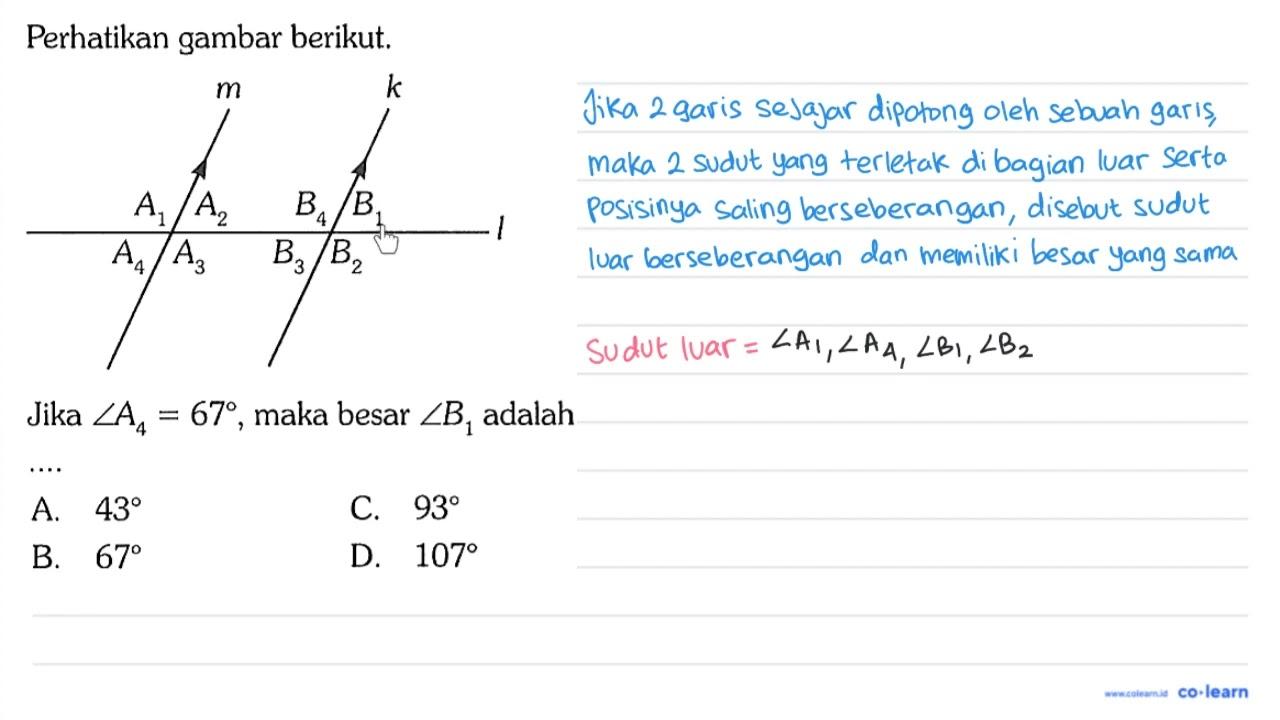 Perhatikan gambar berikut.
m k
A₁ A₂ B₄ B₁ l
A₄ A₃ B₃ B₂
Jika 2 garis sejajar dipotong oleh sebuah garis,
maka 2 sudut yang terletak di bagian luar serta
posisinya saling berseberangan, disebut sudut
luar berseberangan dan memiliki besar yang sama
Sudut luar = ∠A₁, ∠A₄, ∠B₁, ∠B₂
Jika ∠A₄ = 67°, maka besar ∠B₁ adalah
....
A. 43° C. 93°
B. 67° D. 107°
www.colearn.id co·learn